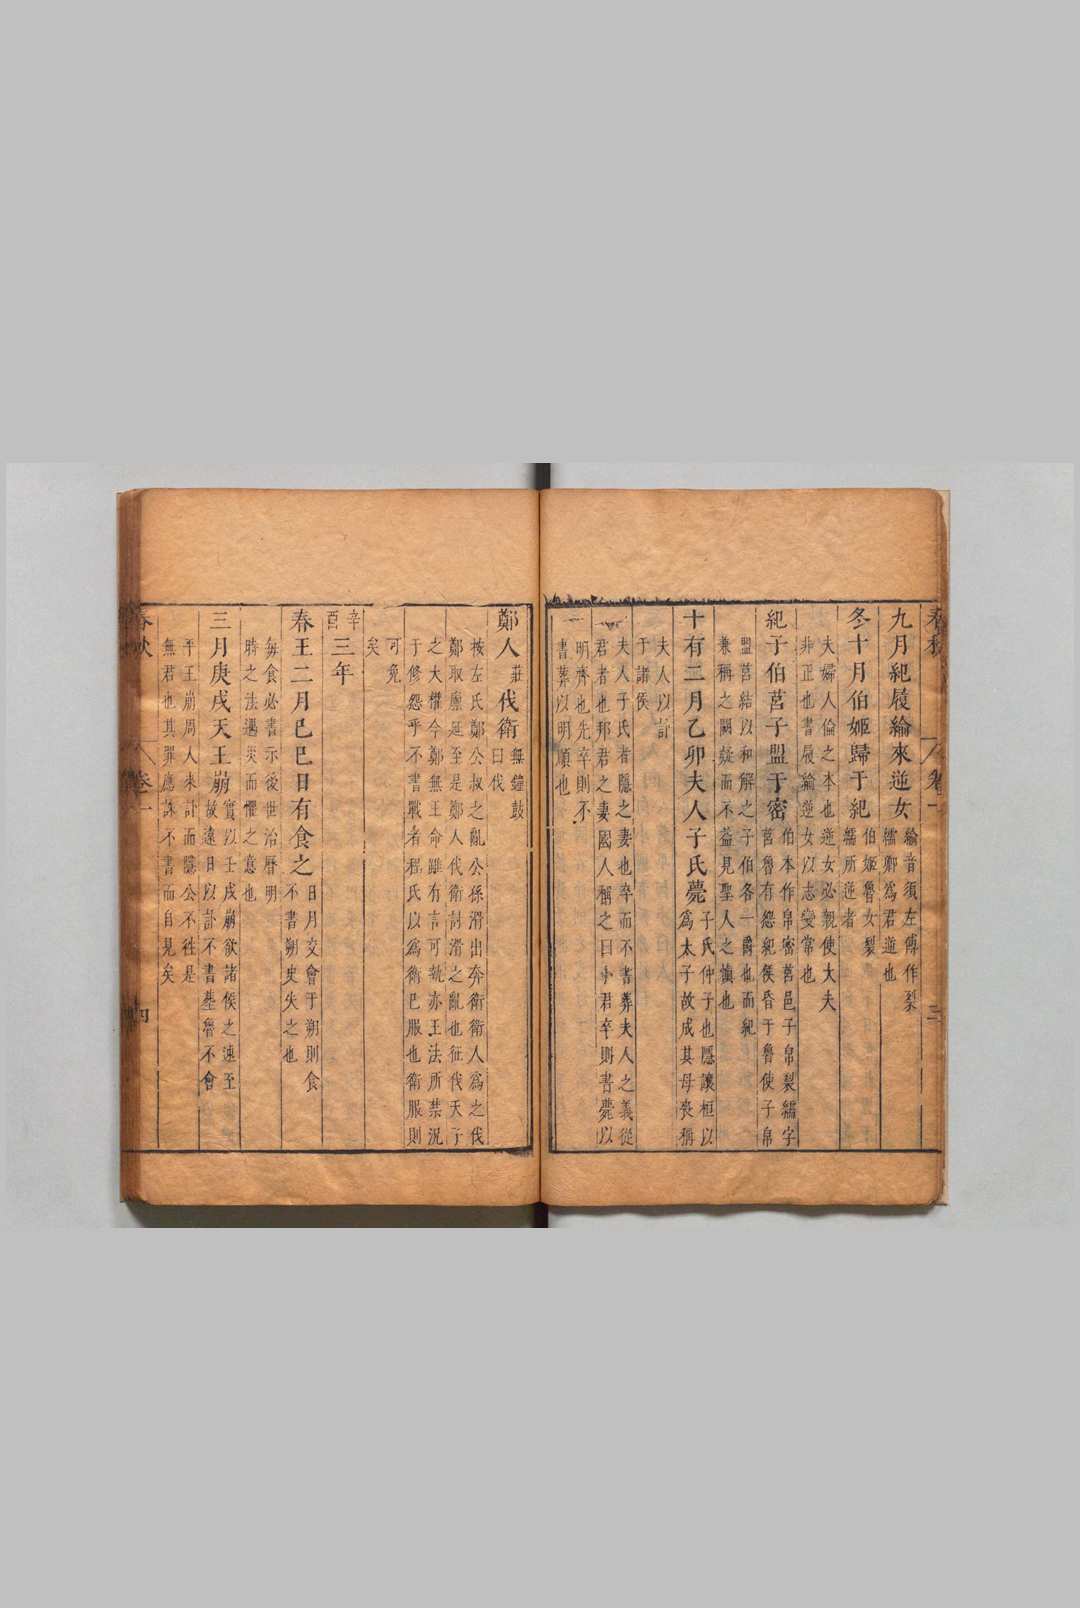 九月紀履綸來逆女
綸音須左傳作裂
繻卿爲君逆也
冬十月伯姬歸于紀
伯姬魯女裂
繻所逆者
夫婦人倫之本也逆女必親使大夫
非正也書履綸逆女以志變常也
紀子伯莒子盟于密
伯本作帛密莒邑子帛裂繻字
莒魯有怨紀侯昏于魯使子帛
盟莒結以和解之子伯各一爵也而紀
兼稱之闕疑而不益見聖人之慎也
十有二月乙卯夫人子氏薨
子氏仲子也隱讓桓以
爲太子故成其母喪稱
夫人以訃
于諸侯
夫人子氏者隱之妻也卒而不書葬夫人之義從
君者也邦君之妻國人稱之曰小君卒則書薨以
明齊也先卒則不
書葬以明順也
春秋
卷一
三
鄭人
莊
伐衛
無鐘鼓
曰伐
按左氏鄭公叔之亂公孫滑出奔衛衛人爲之伐
鄭取廩延至是鄭人伐衛討滑之亂也征伐天子
之大權今鄭無王命雖有言可執亦王法所禁況
于修怨乎不書戰者程氏以爲衛已服也衛服則
可免
矣
辛
酉
三年
春王二月已巳日有食之
日月交會于朔則食
不書朔史失之也
每食必書示後世治曆明
時之法遇災而懼之意也
三月庚戌天王崩
實以壬戌崩欲諸侯之速至
故遠日以訃不書葬魯不會
平王崩周人來訃而隱公不往是
無君也其罪應誅不書而自見矣
春秋
卷一
四